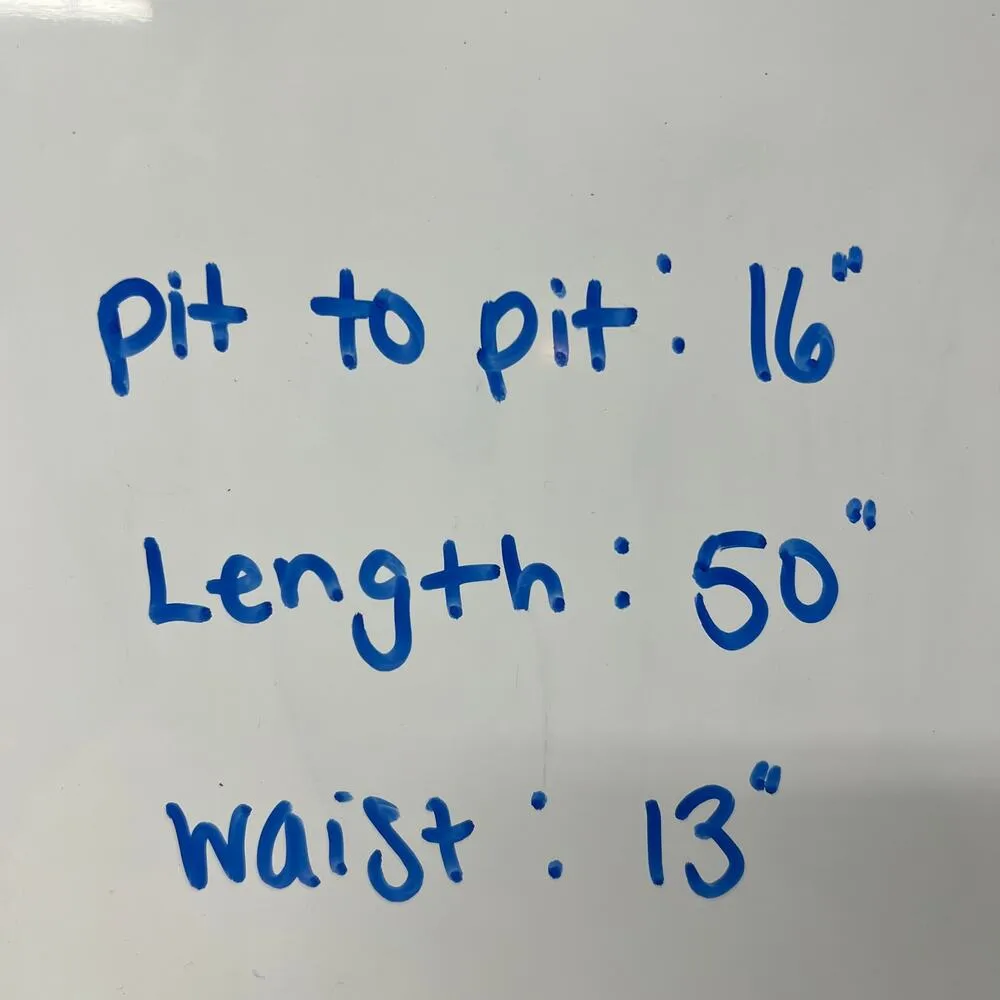 pit to pit: 16"
Length: 50"
waist: 13"